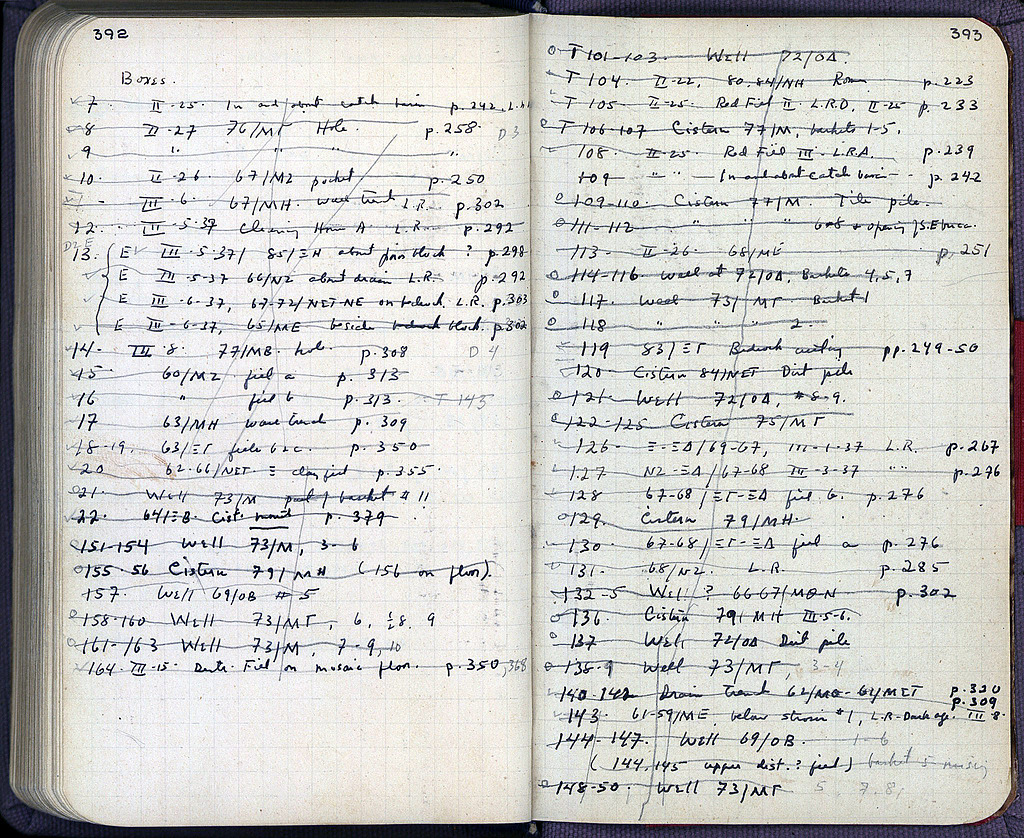 392
Boxes.
7 II-25. In and about catch basin p. 242, L.R.
8 II-27 76/ΜΓ Hole. p. 258. D 3
9 " " " "
10 II-26 67/ΜΖ pocket p. 250
III-6. 67/ΜΗ. L.R. p. 302
12. III-5-37 Clearing House A. L.R. p. 292
D2 E
13. E III-5-37 85/ΞΗ about block ? p. 298
E III-5-37 66/ΝΖ about drain L.R. p. 292
E III-6-37, 67-72/ΝΣΤ-ΝΕ on bedrock L.R. p. 303
E III-6-37, 65/ΜΕ beside block. p. 302
14- III-8. 77/ΜΒ. hole p. 308 D 4
15 60/ΜΖ fill a p. 313
16 " fill b p. 313. - T 143
17 63/ΜΗ trench p. 309
18-19. 63/ΞΓ fill b & c. p. 350
20 62-66/ΝΣΤ-Ξ clay fill p. 355.
21. Well 73/Μ part / basket # 11
22. 64/ΞΒ Cist. p. 379
151-154 Well 73/Μ, 3-6
155-56 Cistern 79/ΜΗ (156 on floor).
157. Well 69/ΟΒ # 5
158-160 Well 73/ΜΓ, 6, 8. 9
161-163 Well 73/Μ, 7-9, 10
164 III-15- Destr. Fill on mosaic floor. p. 350, 368
393
T 101-103 Well 72/ΟΔ.
T 104. II-22, 80.84/ΝΗ Room p. 223
T 105 II-25- Red Fill II. L.R.D. II-25 p. 233
T 106-107 Cistern 77/Μ, baskets 1-5.
108. II-25. Red Fill III. L.R.A. p. 239
109 " " - In and about catch basin - p. 242
109-110. Cistern 77/Μ. Tile pile.
111-112 " " " 6+8 + opening / S.E.
113- II-26- 68/ΜΕ p. 251
114-116 Well at 72/ΟΔ, Baskets 4, 5, 7
117. Well 73/ΜΓ Basket 1
118 " " " 2.
119 83/ΞΓ Bedrock cutting pp. 249-50
120 Cistern 84/ΝΣΤ Dirt pile
121- Well 72/ΟΔ, # 8-9.
122-125 Cistern 75/ΜΓ
126- Ξ-ΞΔ/69-67, III-1-37 L.R. p. 267
127 ΝΖ-ΞΔ/67-68 III-3-37 " " p. 276
128 67-68/ΞΓ-ΞΔ fill b. p. 276
129. Cistern 79/ΜΗ
130 67-68/ΞΓ-ΞΔ fill a p. 276
131. 68/ΝΖ. L.R. p. 285
132-5 Well ? 66-67/ΜΘ-Ν p. 302
136. Cistern 79/ΜΗ III-5-6.
137 Well 72/ΟΔ Dirt pile
138-9 Well 73/ΜΓ, 3-4
140-142 Drain trench 62/ΜΘ-64/ΜΣΤ p. 320
p. 309
143. 61-59/ΜΕ, below stosis #1, L.R-Dark age. III-8-
144-147. Well 69/ΟΒ. 1-6
(144, 145 upper dist. ? fill) basket 5 missing
148-50. Well 73/ΜΓ 5, 7, 8,